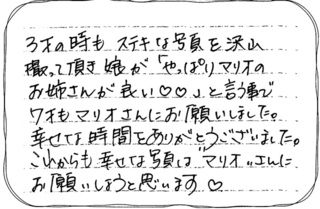 3才の時も ステキな写真を沢山
撮って頂き娘が「やっぱりマリオの
お姉さんが良い♡♡」と言う事で
7才もマリオさんにお願いしました。
幸せな時間をありがとうございました。
これからも幸せな写真は"マリオ"さんに
お願いしようと思います♡